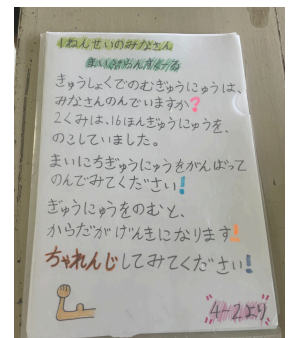 1ねんせいのみなさん
きゅうしょくでのむぎゅうにゅうは、
みなさんのんでいますか?
2くみは、16ほんぎゅうにゅうを、
のこしていました。
まいにちぎゅうにゅうをがんばって
のんでみてください!
ぎゅうにゅうをのむと、
からだがげんきになります!
ちゃれんじしてみてください!
4-2より